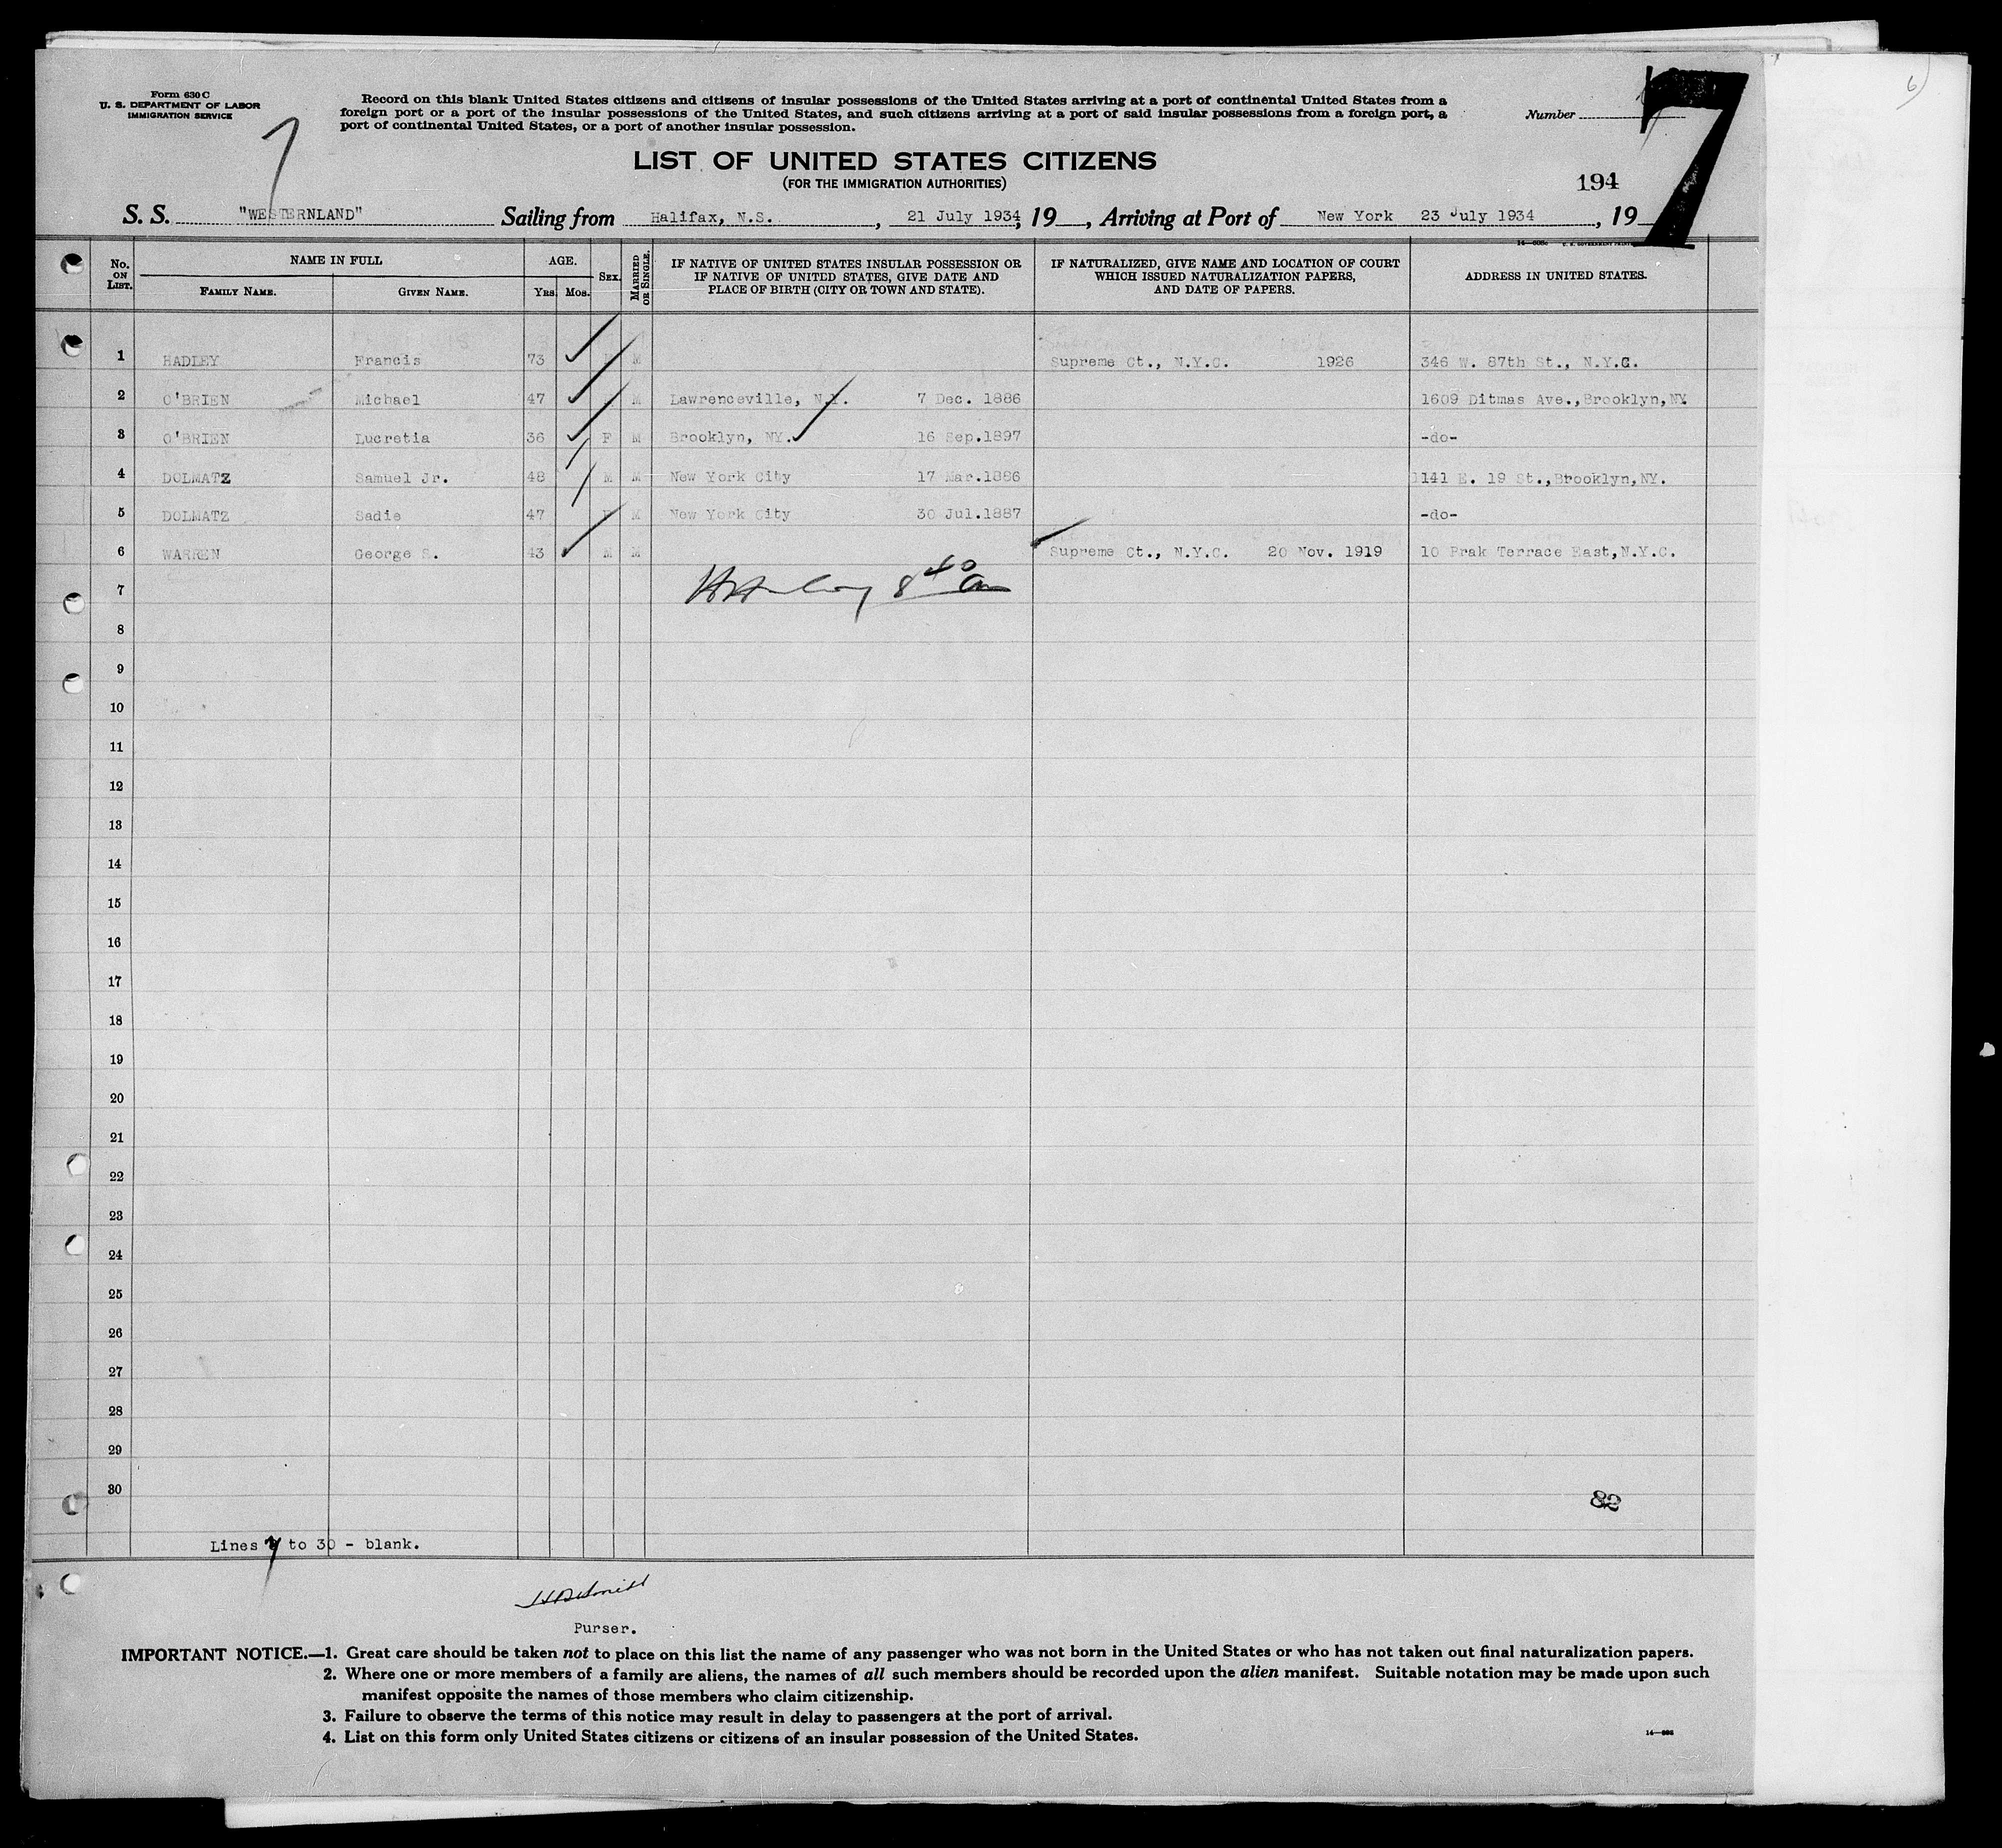 Form 630 C
U. S. DEPARTMENT OF LABOR
IMMIGRATION SERVICE
7
Record on this blank United States citizens and citizens of insular possessions of the United States arriving at a port of continental United States from a
foreign port or a port of the insular possessions of the United States, and such citizens arriving at a port of said insular possessions from a foreign port, a
port of continental United States, or a port of another insular possession.
Number
7
6
LIST OF UNITED STATES CITIZENS
(FOR THE IMMIGRATION AUTHORITIES)
194
S. S. "WESTERNLAND" Sailing from Halifax, N.S. , 21 July 1934, 19 , Arriving at Port of New York 23 July 1934 , 19
No. ON LIST. NAME IN FULL FAMILY NAME. GIVEN NAME. AGE. YRS. MOS. SEX. MARRIED OR SINGLE. IF NATIVE OF UNITED STATES INSULAR POSSESSION OR IF NATIVE OF UNITED STATES, GIVE DATE AND PLACE OF BIRTH (CITY OR TOWN AND STATE). IF NATURALIZED, GIVE NAME AND LOCATION OF COURT WHICH ISSUED NATURALIZATION PAPERS, AND DATE OF PAPERS. ADDRESS IN UNITED STATES.
1 HADLEY Francis 73 M Supreme Ct., N.Y.C. 1926 346 W. 87th St., N.Y.C.
2 O'BRIEN Michael 47 M Lawrenceville, N.Y. 7 Dec. 1886 1609 Ditmas Ave.,Brooklyn,NY
3 O'BRIEN Lucretia 36 F M Brooklyn, NY. 16 Sep.1897 -do-
4 DOLMATZ Samuel Jr. 48 M M New York City 17 Mar.1886 1141 E. 19 St.,Brooklyn,NY.
5 DOLMATZ Sadie 47 M New York City 30 Jul.1887 -do-
6 WARREN George S. 43 M M Supreme Ct., N.Y.C. 20 Nov. 1919 10 Prak Terrace East,N.Y.C.
7 8 40 am
8
9
10
11
12
13
14
15
16
17
18
19
20
21
22
23
24
25
26
27
28
29
30
82
Lines 7 to 30 - blank.
Purser.
IMPORTANT NOTICE.—1. Great care should be taken not to place on this list the name of any passenger who was not born in the United States or who has not taken out final naturalization papers.
2. Where one or more members of a family are aliens, the names of all such members should be recorded upon the alien manifest. Suitable notation may be made upon such
manifest opposite the names of those members who claim citizenship.
3. Failure to observe the terms of this notice may result in delay to passengers at the port of arrival.
4. List on this form only United States citizens or citizens of an insular possession of the United States.